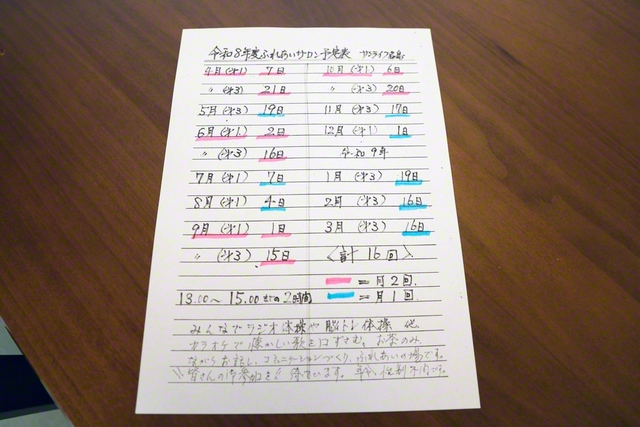 令和8年度ふれあいサロン予定表 サンライフ
4月(第1) 7日
〃 (第3) 21日
5月(第3) 19日
6月(第1) 2日
〃 (第3) 16日
7月(第1) 7日
8月(第1) 4日
9月(第1) 1日
〃 (第3) 15日
10月(第1) 6日
〃 (第3) 20日
11月(第3) 17日
12月(第1) 1日
令和9年
1月(第3) 19日
2月(第3) 16日
3月(第3) 16日
〈計16回〉
=月2回
=月1回
13.00〜15.00までの2時間
みんなでラジオ体操や脳トレ体操 他
カラオケで懐かしい歌を口ずさむ。お茶のみ
ながらお話し、コミュニケーションづくり、ふれあいの場です。
皆さんの御参加をお待ちいます。年令、性別不問です。